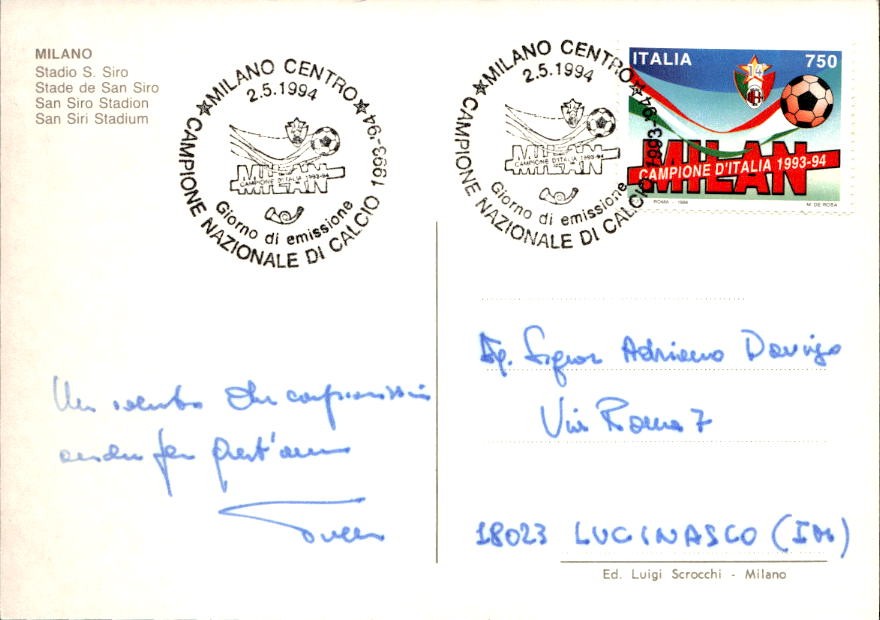 MILANO
Stadio S. Siro
Stade de San Siro
San Siro Stadion
San Siri Stadium
MILANO CENTRO
2.5.1994
MILAN
CAMPIONE D'ITALIA 1993-94
Giorno di emissione
CAMPIONE NAZIONALE DI CALCIO 1993-'94
MILANO CENTRO
2.5.1994
MILAN
CAMPIONE D'ITALIA 1993-94
Giorno di emissione
CAMPIONE NAZIONALE DI CALCIO 1993-'94
ITALIA 750
14
MILAN
CAMPIONE D'ITALIA 1993-94
ROMA M. DE ROSA
Un saluto
anche per quest'anno
Eg. Signor Adriano Davigo
Via Roma 7
18023 LUCINASCO (IM)
Ed. Luigi Scrocchi - Milano